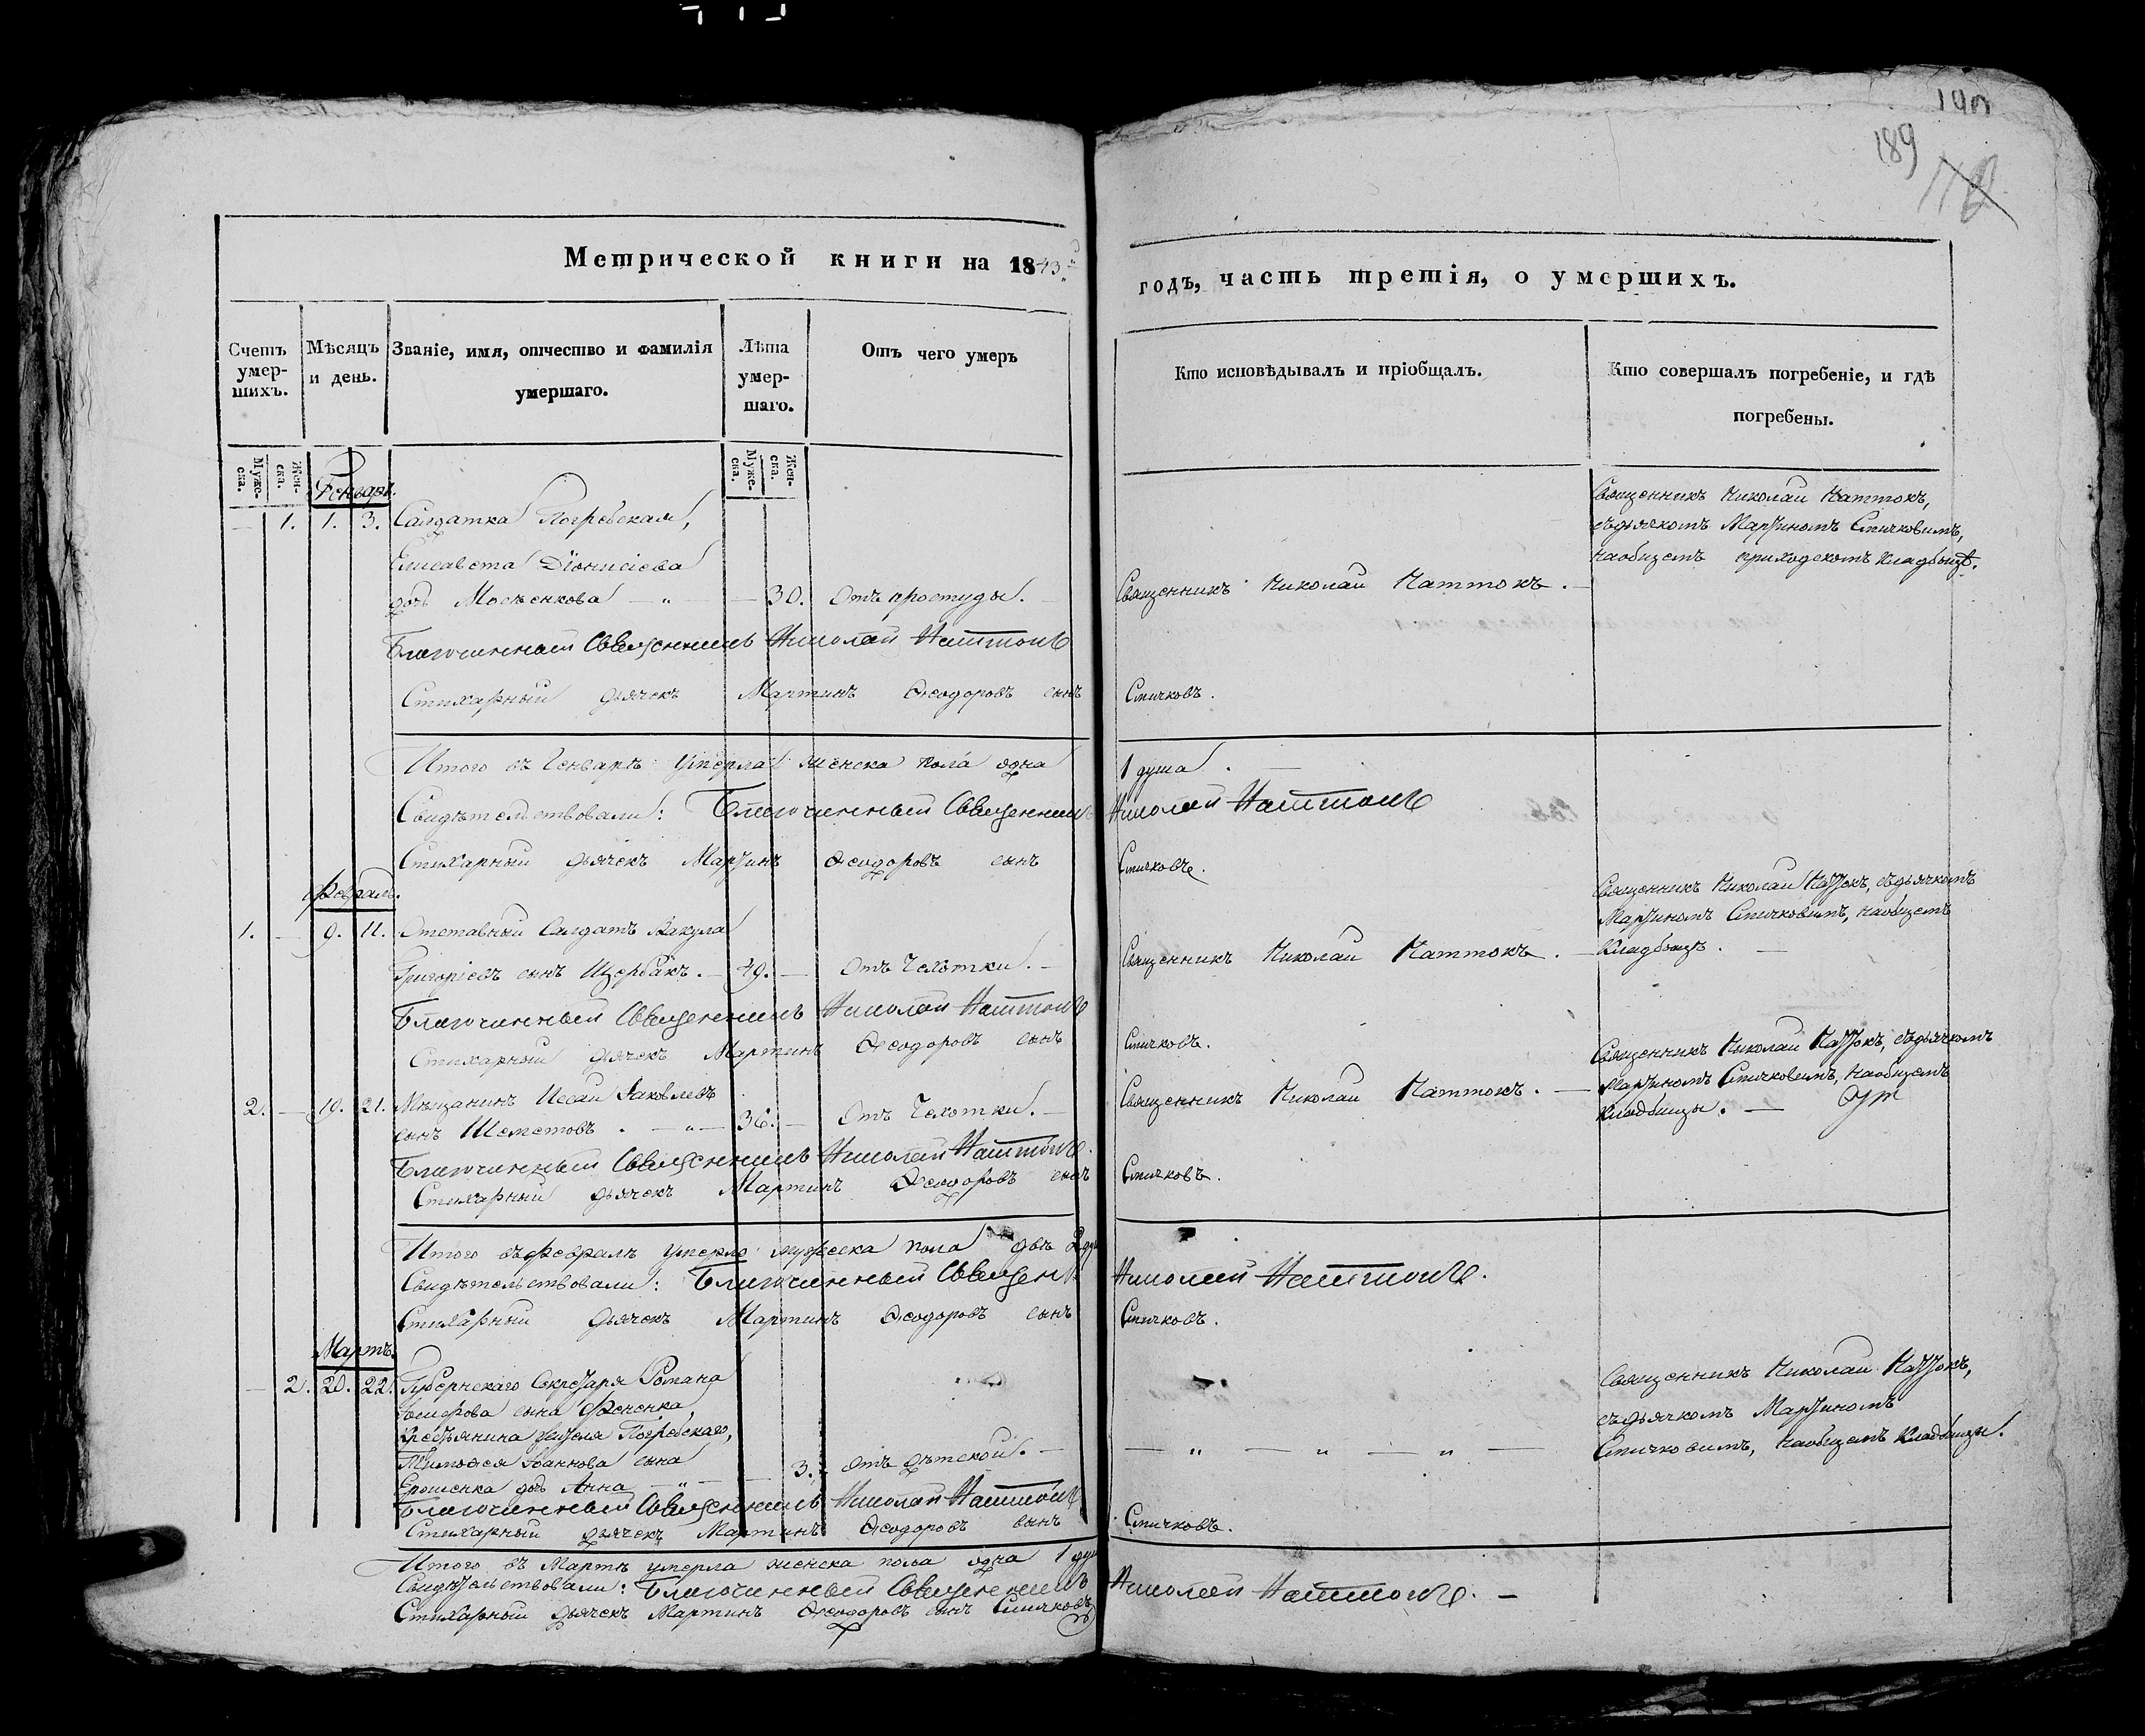 190
189
Метрической книги на 1843
годъ, часть третія, о умершихъ.
Счетъ умер-шихъ.
Мѣсяцъ и день.
Званіе, имя, отчество и фамилія умершаго.
Лѣта умер-шаго.
Отъ чего умеръ
Кто исповѣдывалъ и пріобщалъ.
Кто совершалъ погребеніе, и гдѣ погребены.
Муже-ска.
Жен-ска.
Муже-ска.
Жен-ска.
Генварь.
1. 1. 3. Салдатка Погребская,
Елисавета Діонисіева
дочь Мосѣенкова — „ — 30. Отъ простуды.
Священникъ Николай Наттокъ.
Священникъ Николай Наттокъ,
съдьячкомъ Мартиномъ Спичковимъ,
наобщемъ приходскомъ кладбищѣ.
Благочинный Священникъ Николай Наттокъ
Стихарный дьячекъ Мартинъ Ѳеодоровъ сынъ Спичковъ.
Итого въ Генварѣ умерла женска пола одна 1 душа.
Свидѣтельствовали: Благочинный Священникъ Николай Наттокъ
Стихарный дьячекъ Мартинъ Ѳеодоровъ сынъ Спичковъ.
Февраль.
1. — 9. 11. Отставный Салдатъ Вакула
Григоріевъ сынъ Щербакъ. — 49. — Отъ Чехотки. —
Священникъ Николай Наттокъ. —
Священникъ Николай Наттокъ, съдьячкомъ
Мартиномъ Спичковимъ, наобщемъ
кладбищѣ. —
Благочинный Священникъ Николай Наттокъ
Стихарный дьячекъ Мартинъ Ѳеодоровъ сынъ Спичковъ.
2. — 19. 21. Мѣщанинъ Исаи Яковлевъ
сынъ Шеметовъ. — „ — 36. — Отъ Чехотки. —
Священникъ Николай Наттокъ. —
Священникъ Николай Наттокъ, съдьячкомъ
Мартиномъ Спичковимъ, наобщемъ
кладбищы. —
Благочинный Священникъ Николай Наттокъ.
Стихарный дьячекъ Мартинъ Ѳеодоровъ сынъ Спичковъ.
Итого въ февралѣ умерло мужеска пола двѣ 2 ду
Свидѣтельствовали: Благочинный Священ. Николай Наттокъ.
Стихарный дьячекъ Мартинъ Ѳеодоровъ сынъ Спичковъ.
Мартъ.
— 2. 20. 22. Губернскаго Секретаря Романа
сына Фененка,
Погребскаго,
Тимоѳея Іоаннова сына
Ерошенка дочь Анна — „ — 3. Отъ дѣтской. —
— „ — „ — „ —
Священникъ Николай Наттокъ,
съдьячкомъ Мартиномъ
Спичковимъ, наобщемъ кладбищы.
Благочинный Священникъ Николай Наттокъ
Стихарный дьячекъ Мартинъ Ѳеодоровъ сынъ Спичковъ.
Итого въ Мартѣ умерла женска пола одна 1 душ
Свидѣтельствовали: Благочинный Священникъ Николай Наттокъ. —
Стихарный дьячекъ Мартинъ Ѳеодоровъ сынъ Спичковъ